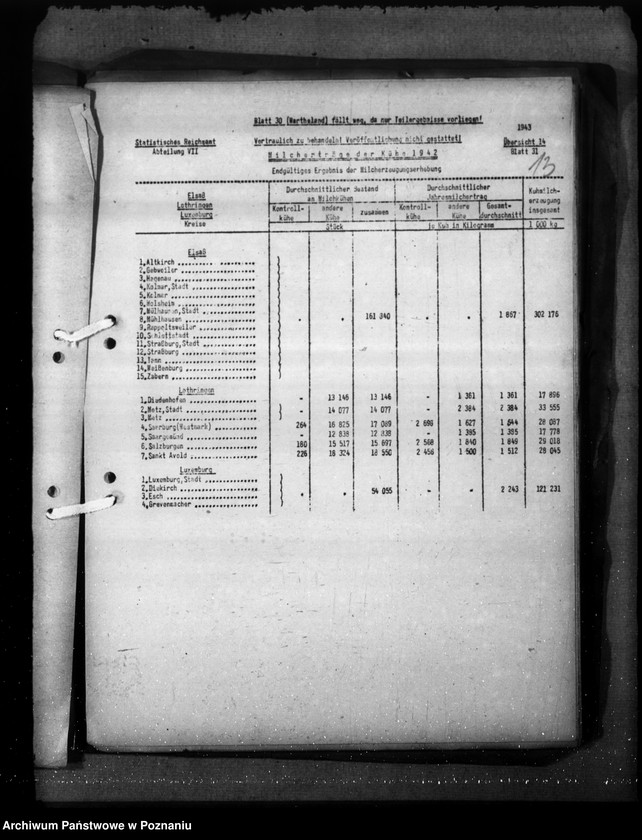 Blatt 30 (Wartheland) fällt weg, da nur Teilergebnisse vorliegen!
1943
Statistisches Reichsamt
Abteilung VII
Vertraulich zu behandeln! Veröffentlichung nicht gestattet!
Übersicht 14
Blatt 31
13
Milcherträge der Kühe 1942
Endgültiges Ergebnis der Milcherzeugungserhebung
Elsaß
Lothringen
Luxemburg
Kreise
Durchschnittlicher Bestand an Milchkühen
Durchschnittlicher Jahresmilchertrag
Kuhmilch-erzeugung insgesamt
Kontroll-kühe andere Kühe zusammen Kontroll-kühe andere Kühe Gesamt-durchschnitt
Stück je Kuh in Kilogramm 1 000 kg
Elsaß
1. Altkirch
2. Gebweiler
3. Hagenau
4. Kolmar, Stadt
5. Kolmar
6. Molsheim
7. Mülhausen, Stadt
8. Mühlhausen . . 161 840 . . 1 867 302 176
9. Rappoltsweiler
10. Schlettstadt
11. Straßburg, Stadt
12. Straßburg
13. Tann
14. Weißenburg
15. Zabern
Lothringen
1. Diedenhofen - 13 146 13 146 - 1 361 1 361 17 896
2. Metz, Stadt - 14 077 14 077 - 2 384 2 384 33 555
3. Metz
4. Saarburg (Westmark) 264 16 825 17 089 2 696 1 627 1 644 28 087
5. Saargemünd - 12 838 12 838 - 1 385 1 385 17 778
6. Salzburgen 180 15 517 15 697 2 568 1 840 1 849 29 018
7. Sankt Avold 226 18 324 18 550 2 456 1 500 1 512 28 045
Luxemburg
1. Luxemburg, Stadt
2. Diekirch . . 54 055 . . 2 243 121 231
3. Esch
4. Grevenmacher
Archiwum Państwowe w Poznaniu